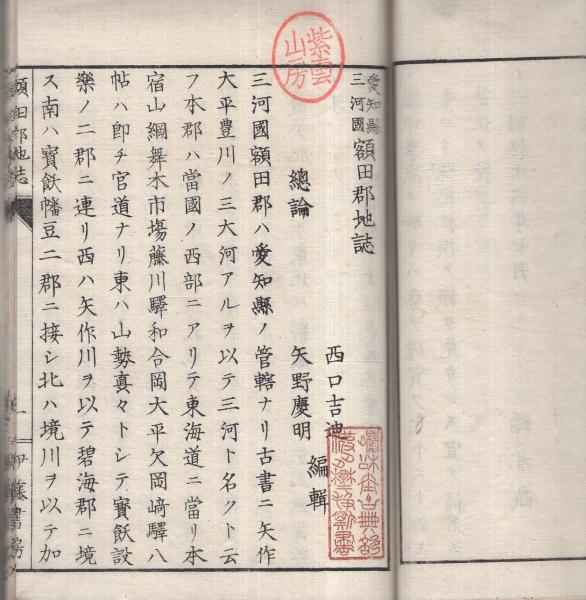 紫雲山房
愛知縣
三河國
額田郡地誌
西口吉迪
矢野慶明
編輯
總論
三河國額田郡ハ愛知縣ノ管轄ナリ古書ニ矢作
大平豊川ノ三大河アルヲ以テ三河ト名クト云
フ本郡ハ當國ノ西部ニアリテ東海道ニ當リ本
宿山綱舞木市塲藤川驛和合岡大平欠岡﨑驛八
帖ハ即チ官道ナリ東ハ山勢真々トシテ寳飫設
樂ノ二郡ニ連リ西ハ矢作川ヲ以テ碧海郡ニ境
ス南ハ寳飫幡豆二郡ニ接シ北ハ境川ヲ以テ加
額田郡地誌
一
伊藤書房